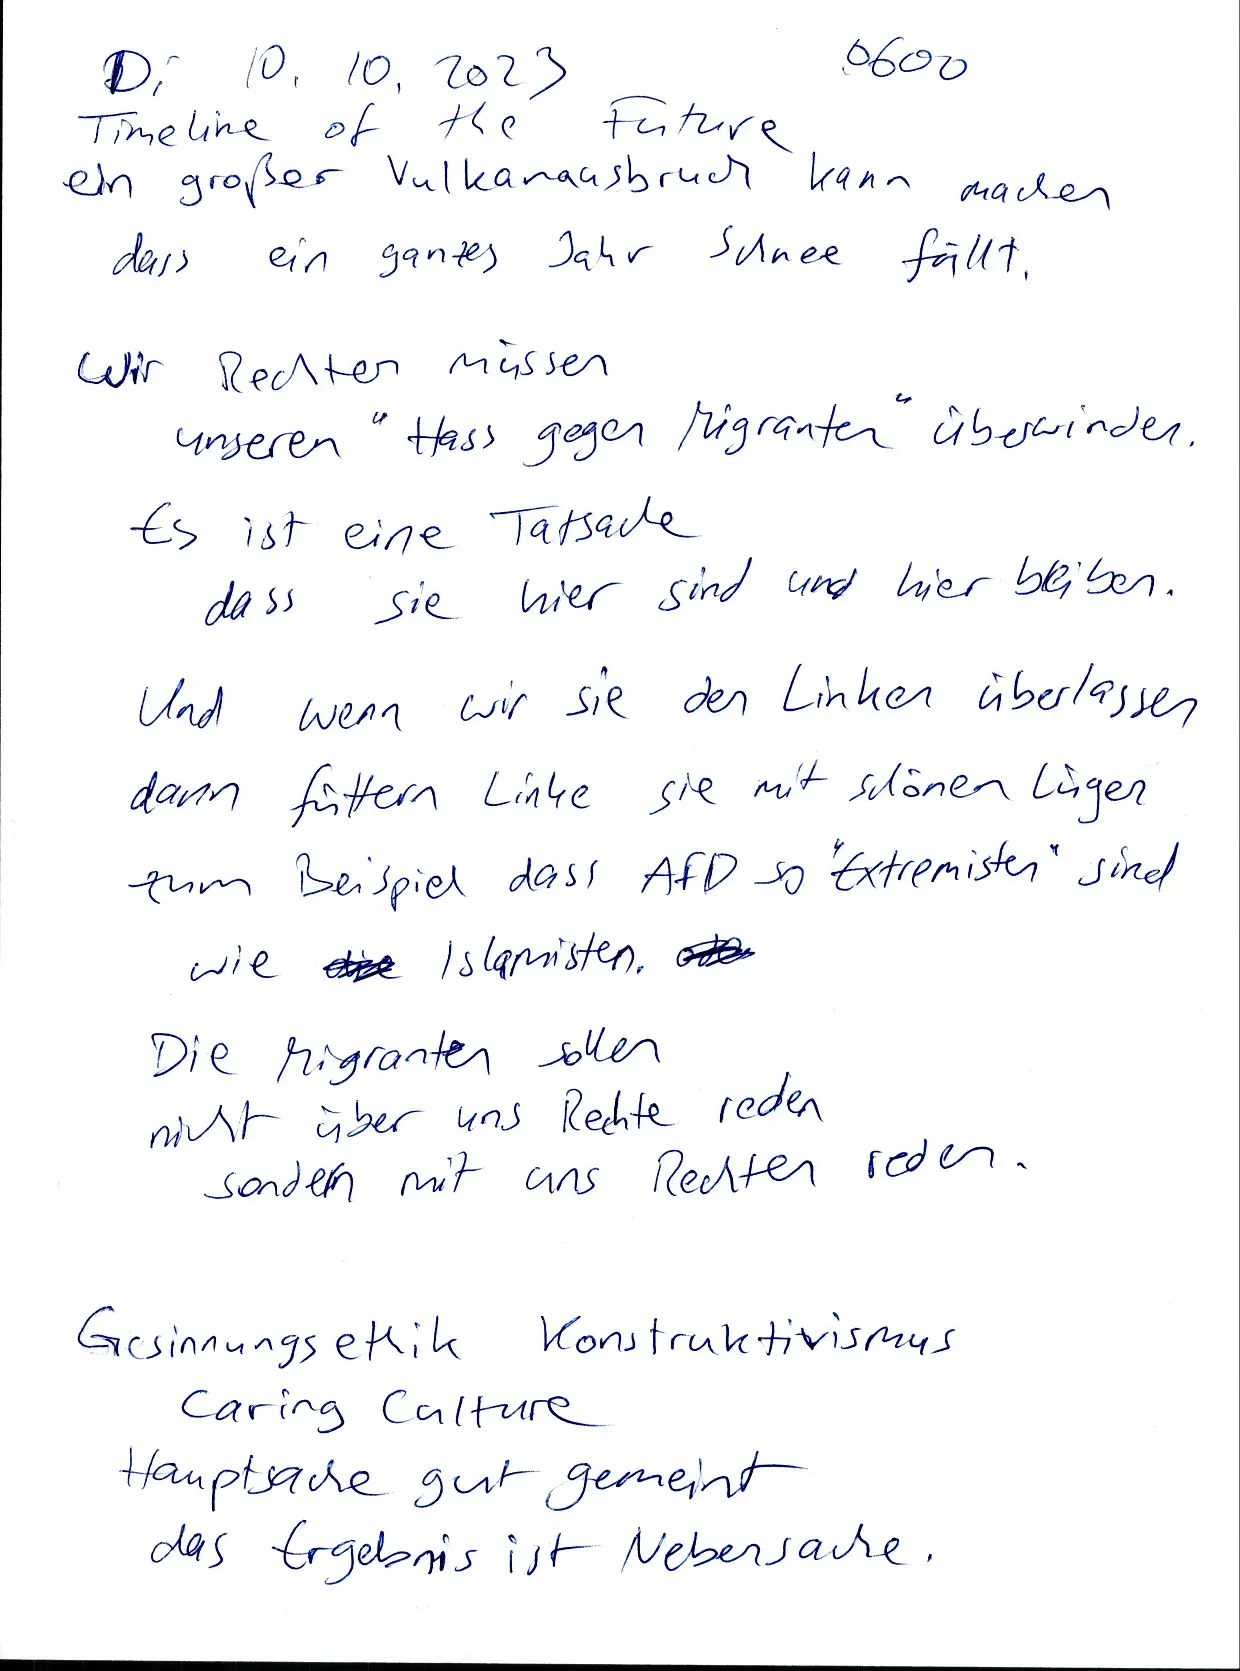 Di 10. 10. 2023 0600
Timeline of the Future
ein großer Vulkanausbruch kann machen
dass ein ganzes Jahr Schnee fällt.
Wir Rechten müssen
unseren "Hass gegen Migranten" überwinden.
Es ist eine Tatsache
dass sie hier sind und hier bleiben.
Und wenn wir sie den Linken überlassen
dann füttern Linke sie mit schönen Lügen
zum Beispiel dass AfD so "Extremisten" sind
wie Islamisten.
Die Migranten sollen
nicht über uns Rechte reden
sondern mit uns Rechten reden.
Gesinnungsethik Konstruktivismus
Caring Culture
Hauptsache gut gemeint
das Ergebnis ist Nebensache.